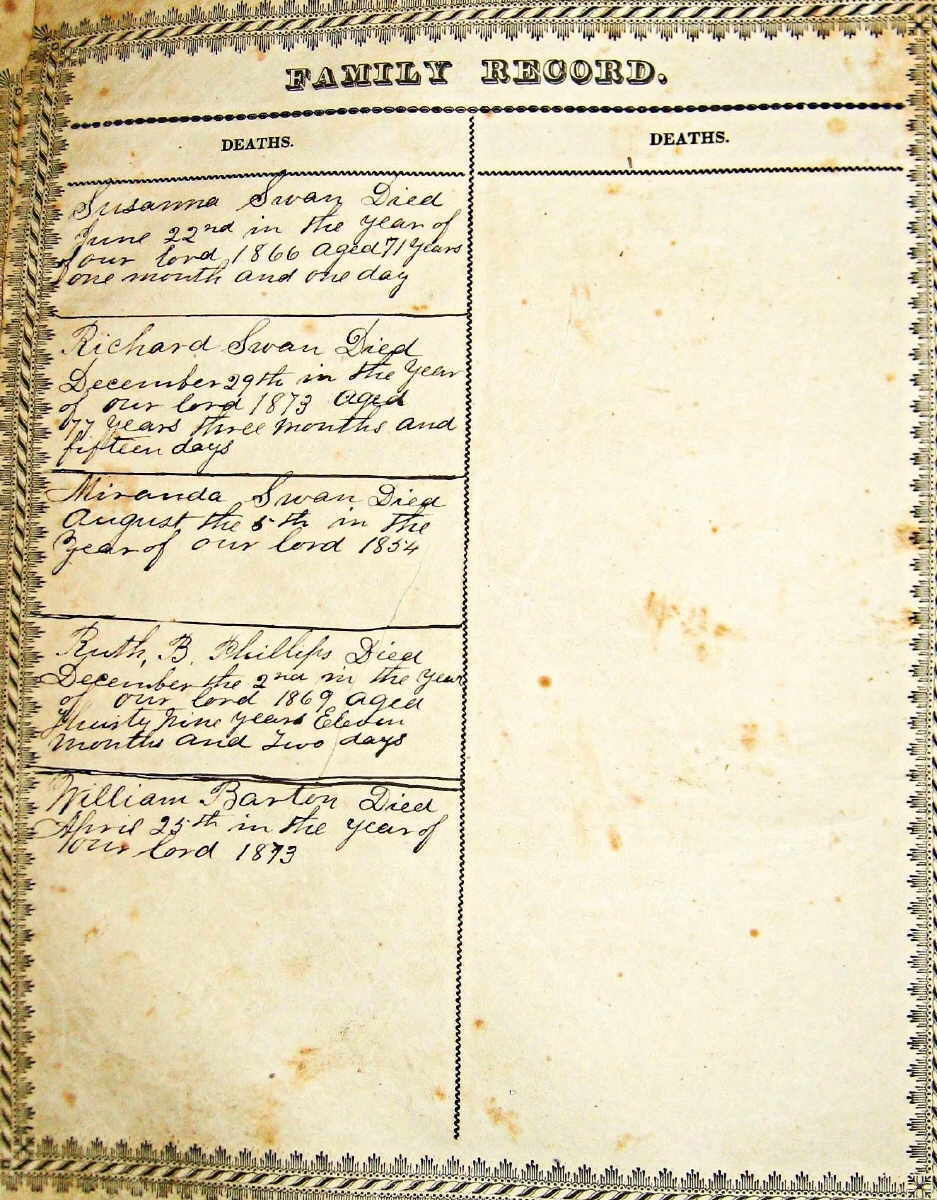 FAMILY RECORD.
DEATHS.
Susanna Swan Died
June 22nd in the year of
our lord 1866 aged 71 years
one month and one day
Richard Swan Died
December 29th in the Year
of our lord 1873 aged
77 years three months and
fifteen days
Miranda Swan Died
August the 5th in the
Year of our lord 1854
Ruth, B. Phillips Died
December the 2nd in the Year
of our lord 1869 aged
thirty Nine years Eleven
months and Two days
William Barton Died
April 25th in the year of
our lord 1873
DEATHS.